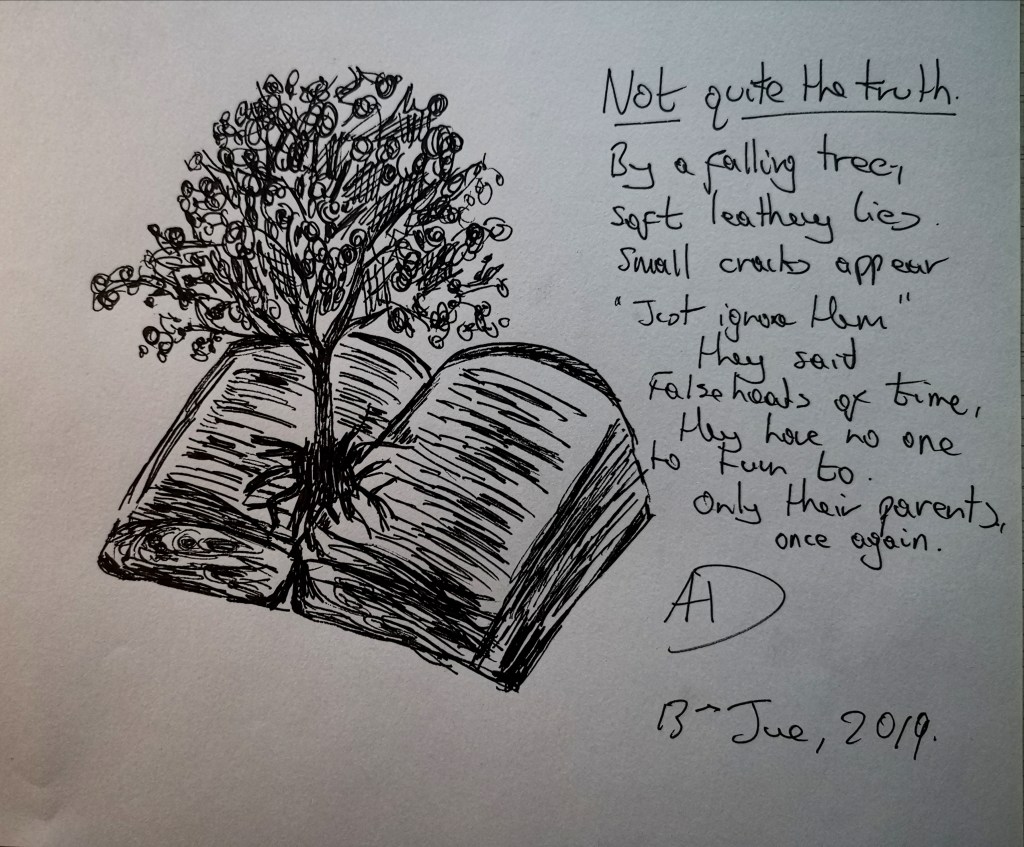 Not quite the truth.
By a falling tree,
soft leathery lies.
Small cracks appear
"Just ignore them"
they said
Falsehoods of time,
they have no one
to turn to.
Only their parents,
once again.
AH
13th June, 2019.